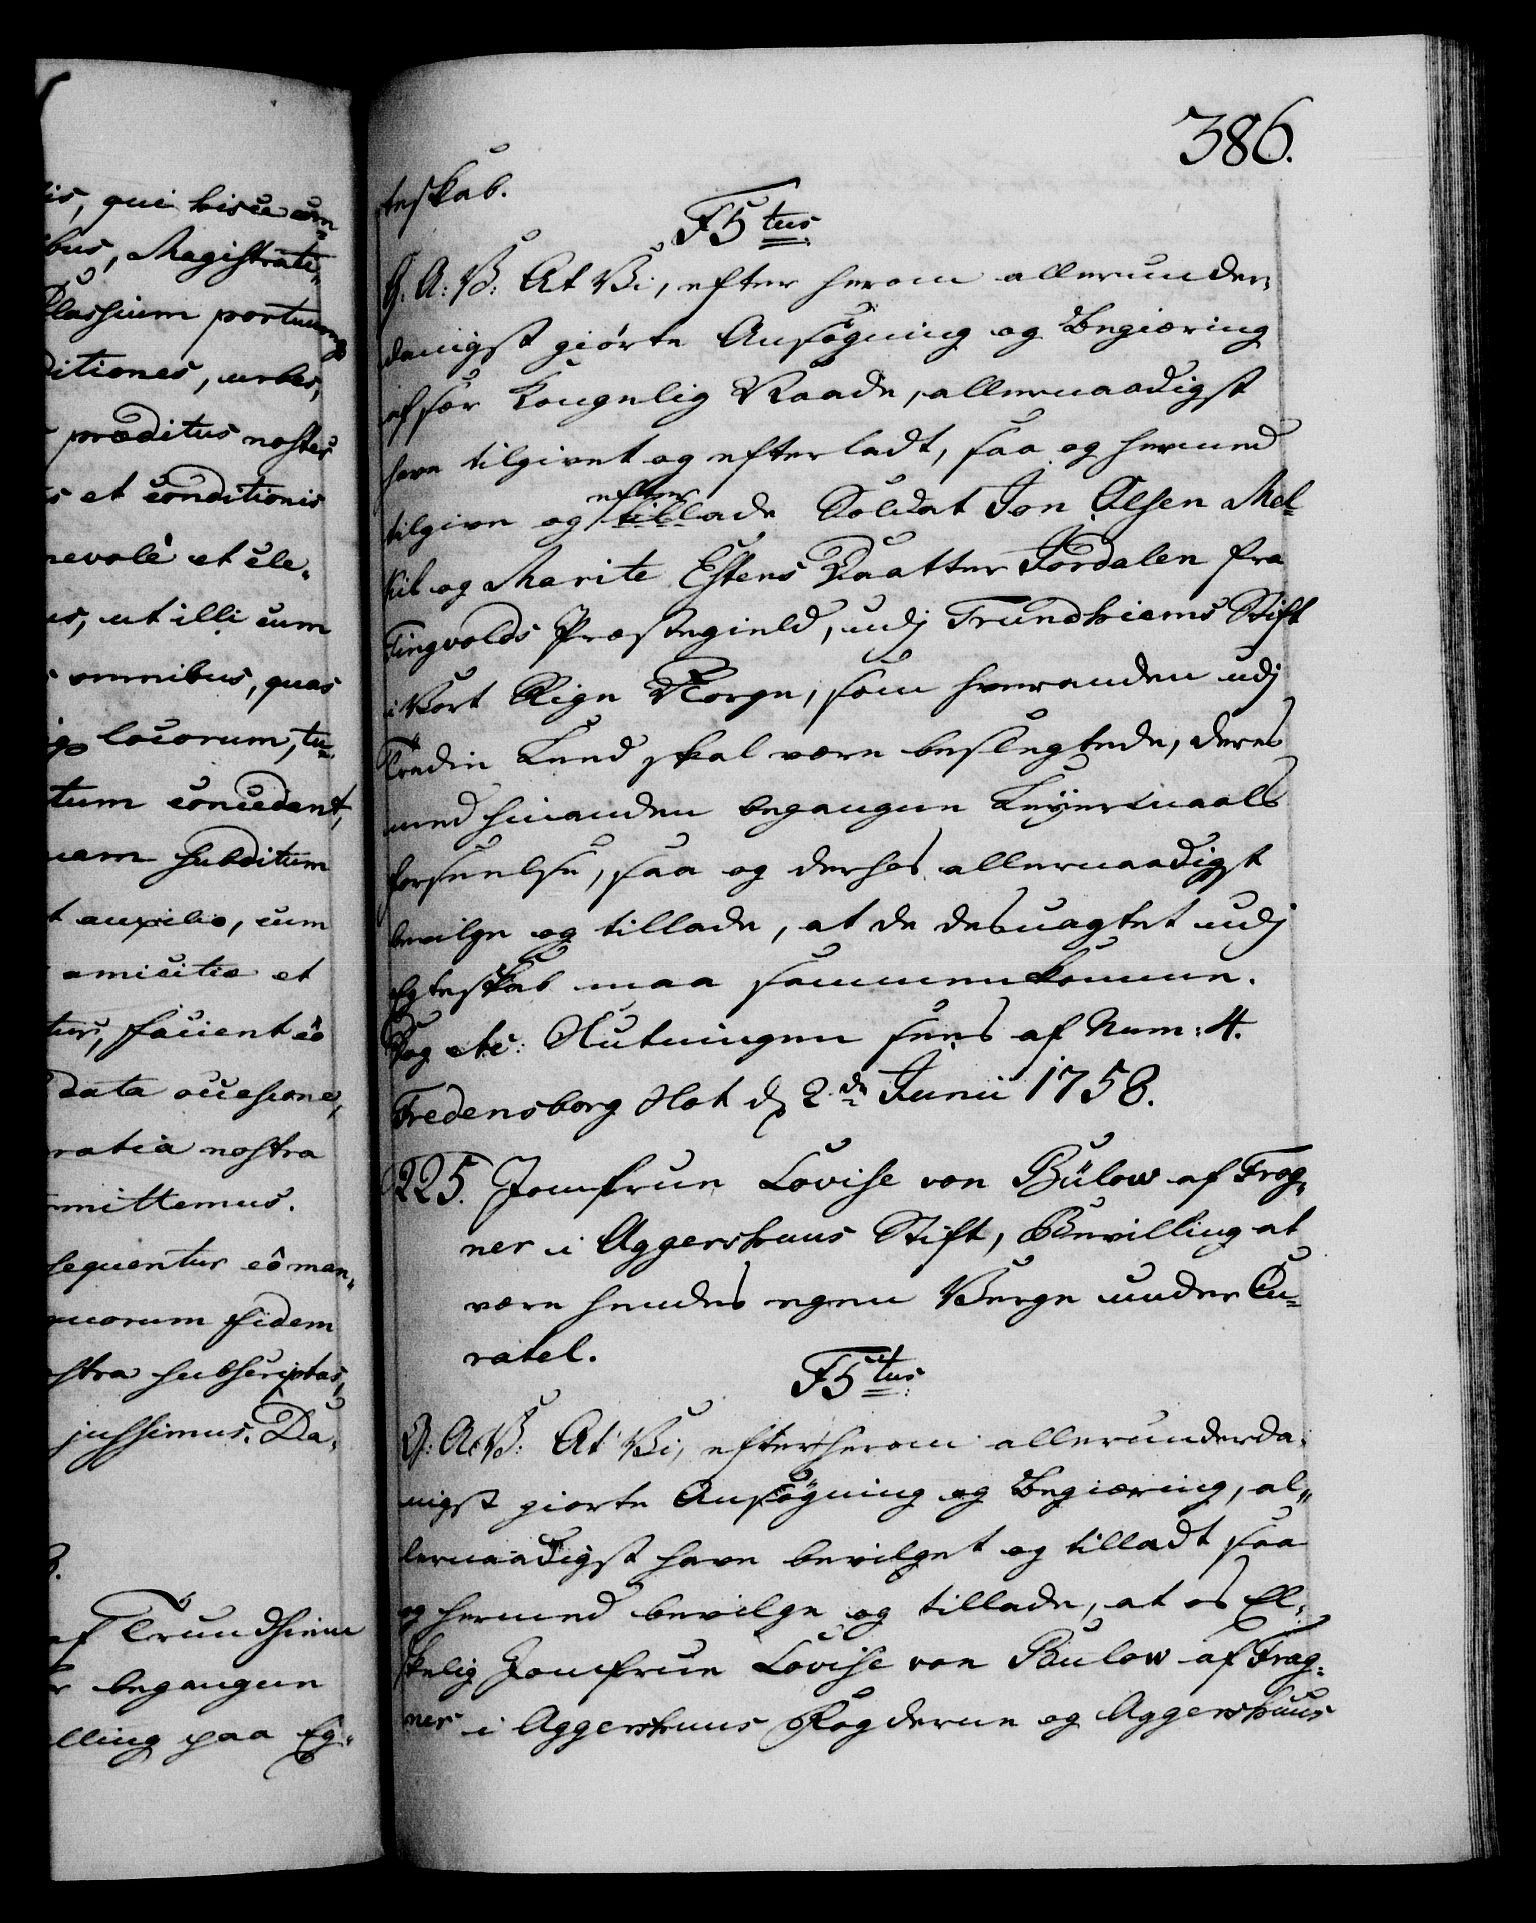 is, qui hisce com-
bus, Magistrati-
Classium portuumq3
ditiones, urbes,
præditus noster
s et conditionis
nevolè et cle-
us, ut illi cum
omnibus, quas
locorum, tu-
tum concedant,
uem subditum
t auxilio, cum
amicitiæ et
tur, facient eo
data occasione,
ratia nostra
mittemus.
sequentur eô man-
quorum fidem
stra subscriptas,
jussimus. Da-
af Trundhiem
begangne
lling paa Eg-
386.
teskab.
F5tus
G: A: V: At Vi, efter herom allerunder-
danigst giorte Ansøgning og Begiæring
af sær Kongelig Naade, allernaadigst
have tilgivet og efterladt, saa og hermed
tilgive og efter tillade Soldat Jon Olsen Mel-
kil og Marite Estens Daatter Jordalen fra
Tingvolds Præstegield, udj Trundhiems Stift
i Vort Rige Norge, som hverandre udj
Tredie Leed skal være beslegtede, deres
med hinanden begangne Leyermaals
forseelse, saa og derhos allernaadigst
bevilge og tillade, at de desuagtet udj
Egteskab maa sammenkomme.
Dog etc: Slutningen sees af Num: 4.
Fredensborg Slot d. 2de Junii 1758.
225. Jomfrue Lovise von Bülow af Frog-
ner i Aggershuus Stift, Bevilling at
være hendes egen Verge under Cu-
ratel.
F5tus
G: A: V: At Vi, efter herom allerunderda-
nigst giorte Ansøgning og Begiæring, al-
lernaadigst have bevilget og tilladt saa
og hermed bevilge og tillade, at os El-
skelig Jomfrue Lovise von Bulow af Frog-
ner i Aggershuus Fogderie og Aggershuus